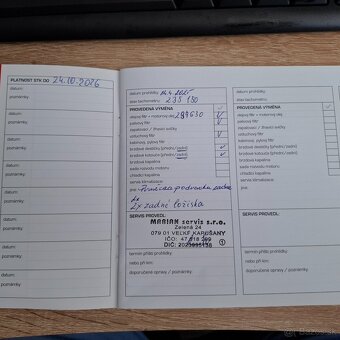 PLATNOST STK DO 24.10.2026
datum:
poznámky:
datum:
poznámky:
datum:
poznámky:
datum:
poznámky:
datum:
poznámky:
datum:
poznámky:
datum:
poznámky:
datum prohlídky: 24.4.2025
stav tachometru: 235 150
PROVEDENÁ VÝMĚNA
olejový filtr + motorový olej
palivový filtr
zapalovací / žhavicí svíčky
vzduchový filtr
kabinový, pylový filtr
brzdové destičky (přední/zadní)
brzdové kotouče (přední/zadní)
brzdová kapalina
sada rozvodů / motor
chladicí kapalina
servis klimatizace
jiné:
2x zadné ložiska
SERVIS PROVEDL:
MARIAN servis s.r.o.
Zelená 24
079 01 VEĽKÉ KAPUŠANY
IČO: 47 218 269
termín příští prohlídky:
nebo při km:
doporučené opravy / poznámky:
datum prohlídky:
stav tachometru:
PROVEDENÁ VÝMĚNA
olejový filtr + motorový olej
palivový filtr
zapalovací / žhavicí svíčky
vzduchový filtr
kabinový, pylový filtr
brzdové destičky (přední/zadní)
brzdové kotouče (přední/zadní)
brzdová kapalina
sada rozvodů / motor
chladicí kapalina
servis klimatizace
jiné:
SERVIS PROVEDL:
termín příští prohlídky:
nebo při km:
doporučené opravy / poznámky: